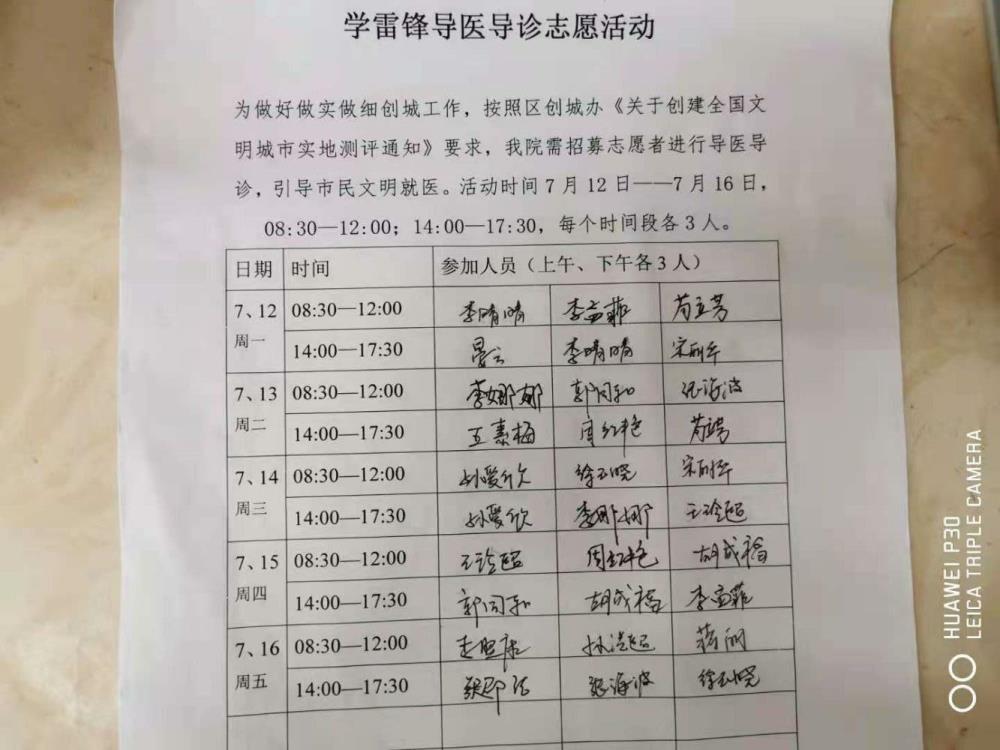 学雷锋导医导诊志愿活动
为做好做实做细创城工作，按照区创城办《关于创建全国文
明城市实地测评通知》要求，我院需招募志愿者进行导医导
诊，引导市民文明就医。活动时间7月12日——7月16日，
08:30—12:00；14:00—17:30，每个时间段各3人。
日期 时间 参加人员（上午、下午各3人）
7、12 周一 08:30—12:00 李晴晴 李益菲
14:00—17:30 李晴晴
7、13 周二 08:30—12:00 李娜娜 郭同和
14:00—17:30 王素梅 周红艳
7、14 周三 08:30—12:00 孙爱欣 徐玉晓
14:00—17:30 孙爱欣 李娜娜 王玲超
7、15 周四 08:30—12:00 王玲超 周红艳 胡成福
14:00—17:30 郭同和 胡成福 李益菲
7、16 周五 08:30—12:00 蒋丽
14:00—17:30 张海波 徐玉晓
HUAWEI P30
LEICA TRIPLE CAMERA